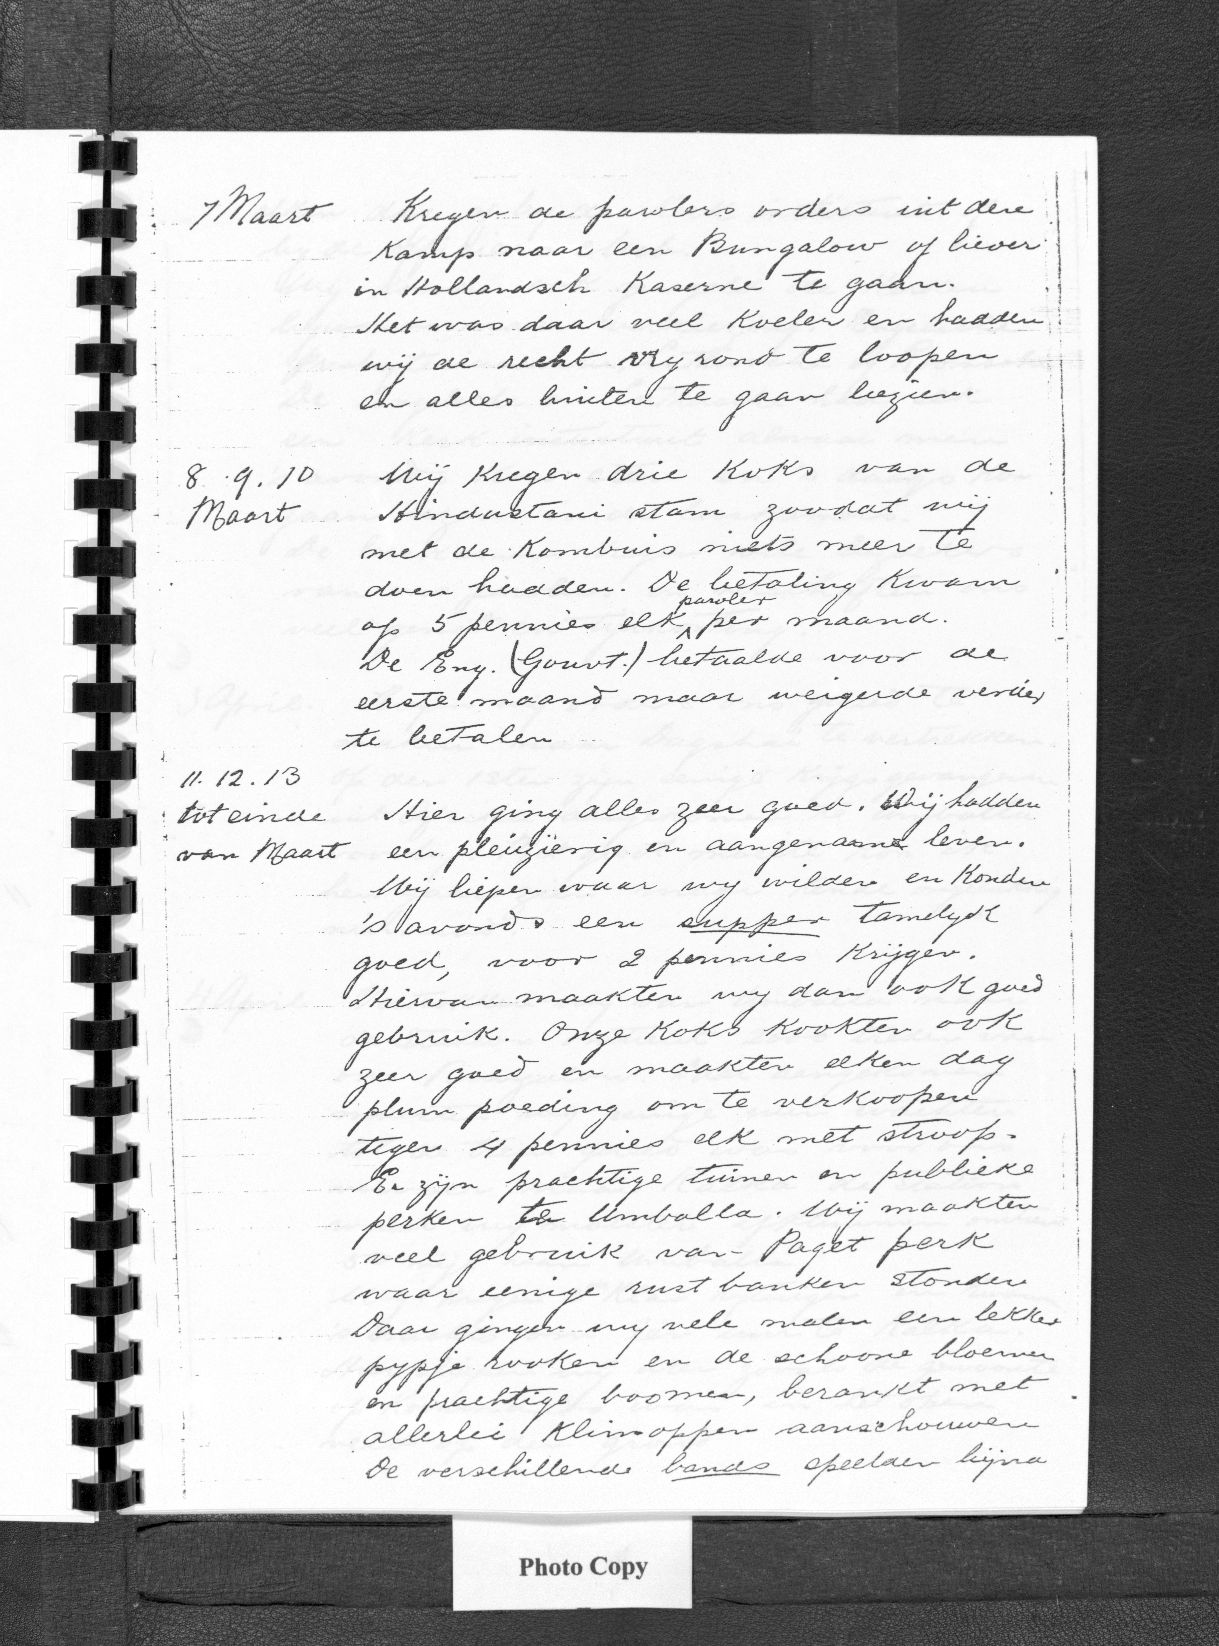 7 Maart Kregen de parolers orders uit den
Kamp naar een Bungalow of liever
in Hollandsch Kaserne te gaan.
Het was daar veel Koeler en hadden
wij de recht vry rond te loopen
en alles buiten te gaan bezien.
8. 9. 10 Wij Kregen drie Koks van de
Maart Hindustani stam zoodat wij
met de Kombuis niets meer te
doen hadden. De betaling Kwam
op 5 pennies elk paroler per maand.
De Eng. (Gouvt.) betaalde voor de
eerste maand maar weigerde verder
te betalen
11. 12. 13
tot einde Hier ging alles zeer goed. Wij hadden
van Maart een pleizierig en aangename leven.
Wij liepen waar wy wilden en Konden
's avonds een supper tamelyk
goed, voor 2 pennies Krijgen.
Hiervan maakten wy dan ook goed
gebruik. Onze Koks Kookten ook
zeer goed en maakten elken dag
plum poeding om te verkoopen
tegen 4 pennies elk met stroop.
Er zijn prachtige tuinen en publieke
perken te Umballa. Wij maakten
veel gebruik van Paget perk
waar eenige rust banken stonden
Daar gingen wy vele malen een lekker
pypje rooken en de schoone bloemen
en prachtige boomen, berankt met
allerlei Klimoppen aanschouwen
De verschillende bands speelden bijna
Photo Copy